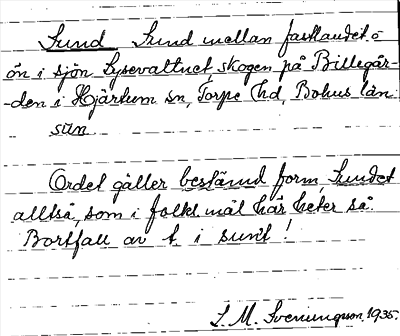 Sund Sund mellan fastlandet o
ön i sjön Lysevattnet, skogen på Billegår-
-den i Hjärtum sn, Torpe hd, Bohus län.
sun
Ordet gäller bestämd form, Sundet
alltså, som i folkets mål här heter så.
Bortfall av t i sunt!
S. M. Svenungson. 1935.